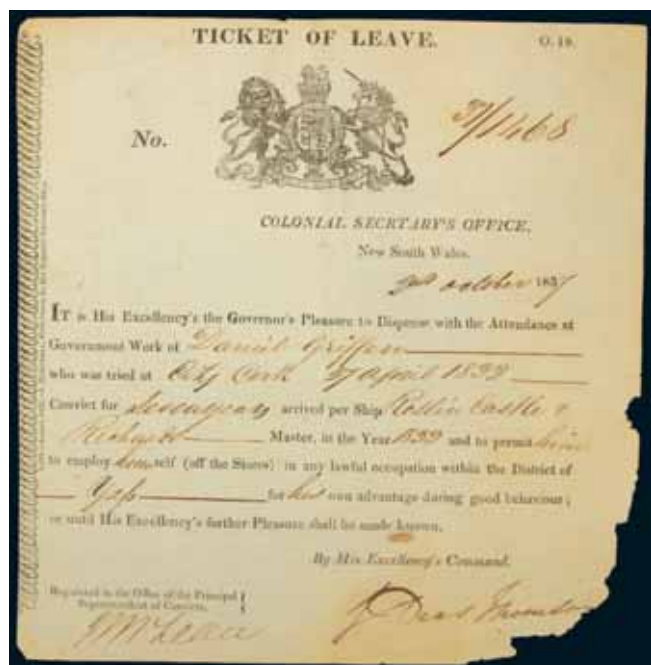 TICKET OF LEAVE.
O. 19.
No.
37/1468
COLONIAL SECRTARY'S OFFICE,
New South Wales.
2nd october 1837
IT is His Excellency's the Governor's Pleasure to Dispense with the Attendance at
Government Work of Daniel Griffen
who was tried at City Cork 27 april 1832
Convict for Seven years arrived per Ship Roslin Castle
Richards Master, in the Year and to permit him
to employ himself (off the Stores) in any lawful occupation within the District of
Yass for his own advantage during good behaviour;
or until His Excellency's further Pleasure shall be made known.
By His Excellency's Command.
Registered in the Office of the Principal
Superintendent of Convicts.
Deas Thomson